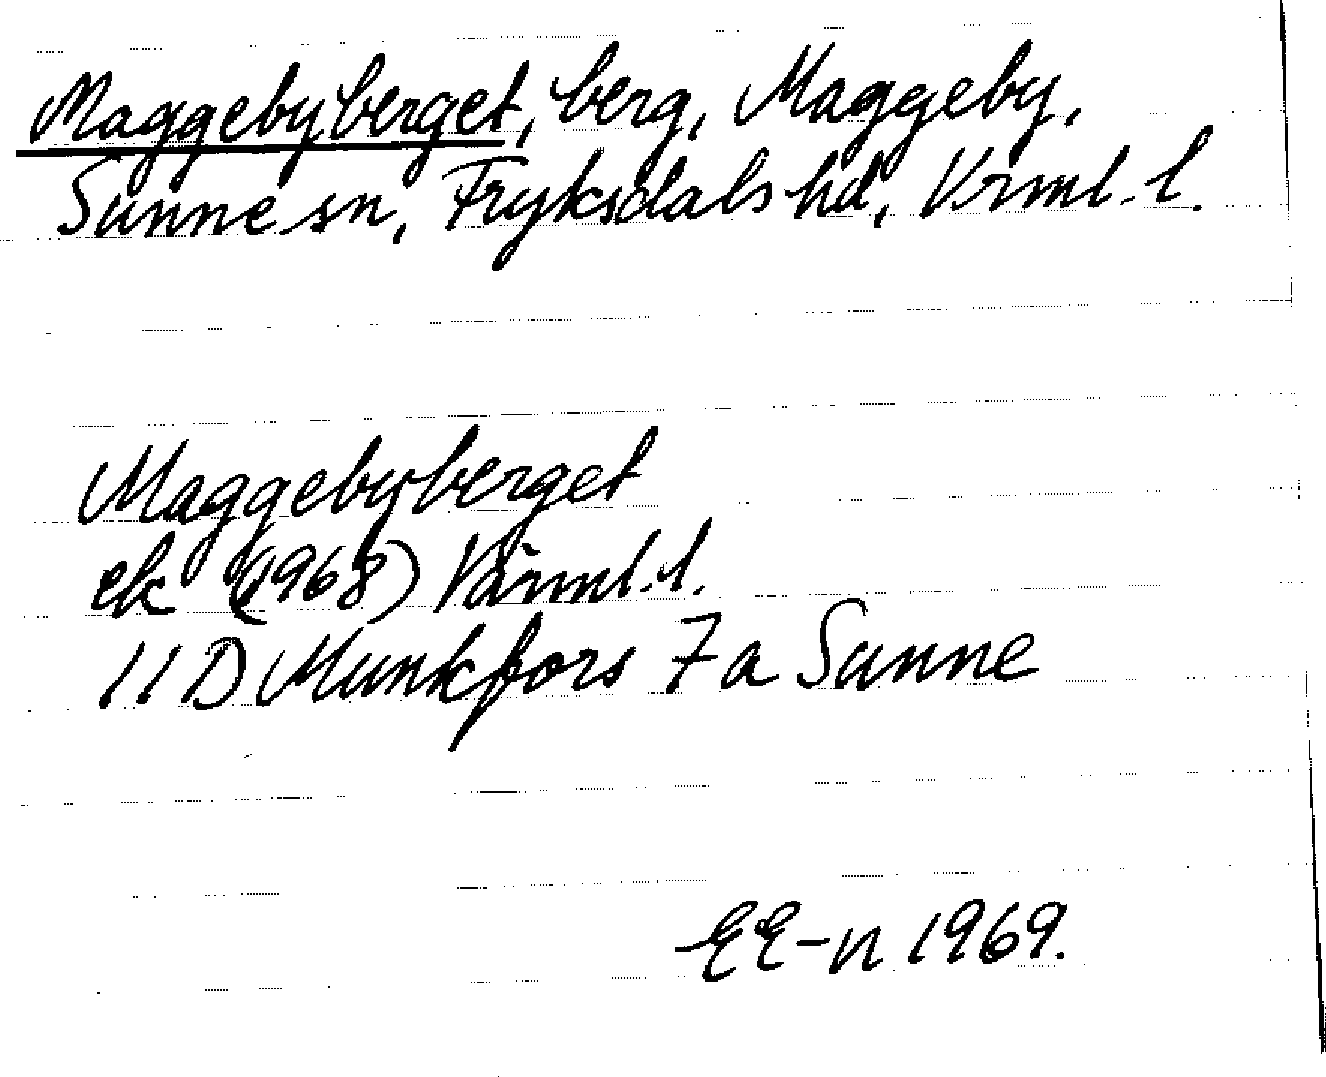 Maggebyberget, berg, Maggeby,
Sunne sn, Fryksdals hd, Vrml. l.
Maggebyberget
ek (1968) Värml. l.
11 D Munkfors 7 a Sunne
EE-n 1969.